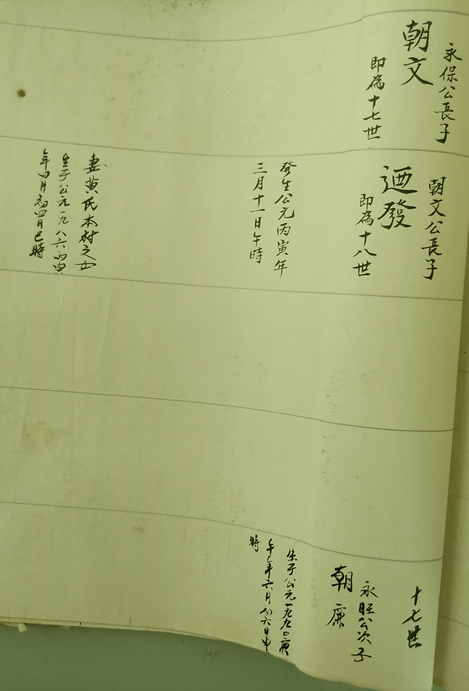 永保公長子
朝文
即為十七世
朝文公長子
迺發
即為十八世
發生公元丙寅年
三月十一日午時
妻黃氏本村之女
生于公元一九八六丙寅
年四月初四日巳時
十七世
永旺公次子
朝廉
生于公元一九九〇庚
午年六月初六日申
時